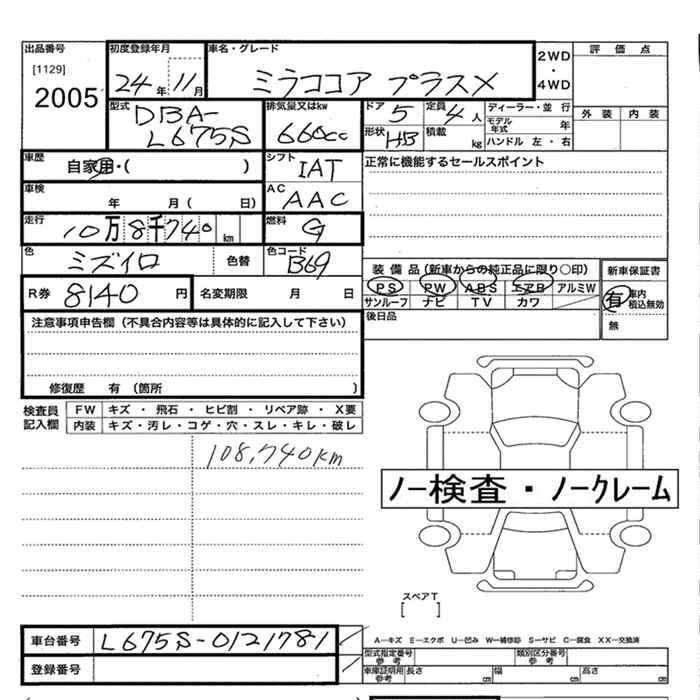 出品番号 初度登録年月 車名・グレード 評価点
[1129] 2WD・4WD
2005 24年11月 ミラココア プラスX 外装 内装
型式 DBA-L675S 排気量又はkw 660cc ドア 5 定員 4人 ディーラー・並行
形状 HB 積載 kg モデル年式 年 ハンドル 左・右
車歴 自家用・( ) シフト IAT 正常に機能するセールスポイント
車検 年 月( 日) AC AAC
走行 10万8千740km 燃料 G
色 ミズイロ 色替 色コード B69
装備品(新車からの純正品に限り○印) 新車保証書
R券 8140円 名変期限 月 日 PS PW ABS エアB アルミW 有 車内 積込無効
サンルーフ ナビ TV カワ
注意事項申告欄(不具合内容等は具体的に記入して下さい) 後日品 無
修復歴 有(箇所 )
検査員記入欄 FW キズ・飛石・ヒビ割・リペア跡・X要
内装 キズ・汚レ・コゲ・穴・スレ・キレ・破レ
108,740km
ノー検査・ノークレーム
スペアT
[ ]
車台番号 L675S-0121781 A―キズ E―エクボ U―凹み W―補修跡 S―サビ C―腐食 XX―交換済
型式指定番号 参考 類別区分番号 参考
登録番号 車庫証明用 参考 長さ cm 幅 cm 高さ cm